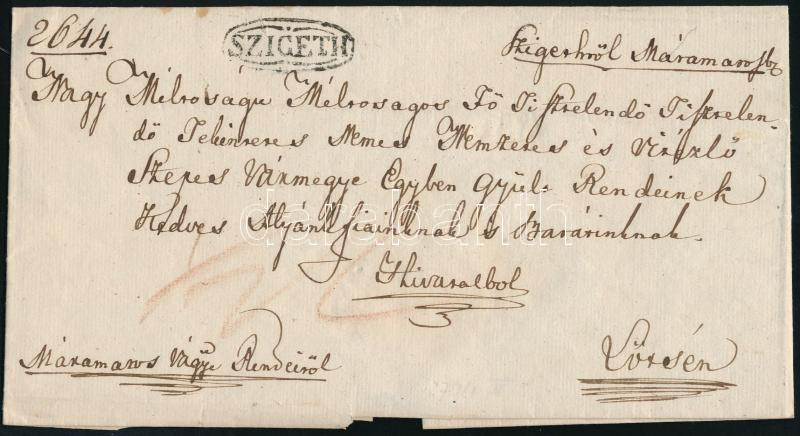 2644.
SZIGETH
Szigethről Máramarosbz
Nagy Méltóságu Méltoságos Fő Tisztelendő Tisztelen-
dő Tekintetes Nemes Nemzetes és Vitézlő
Szepes Vármegye Egyben Gyül: Rendeinek
Kedves Atyánkfiainknak s Barátinknak.
darabanth
Hivatalbol
Máramaros Vágye Rendeiről
Lőtsén